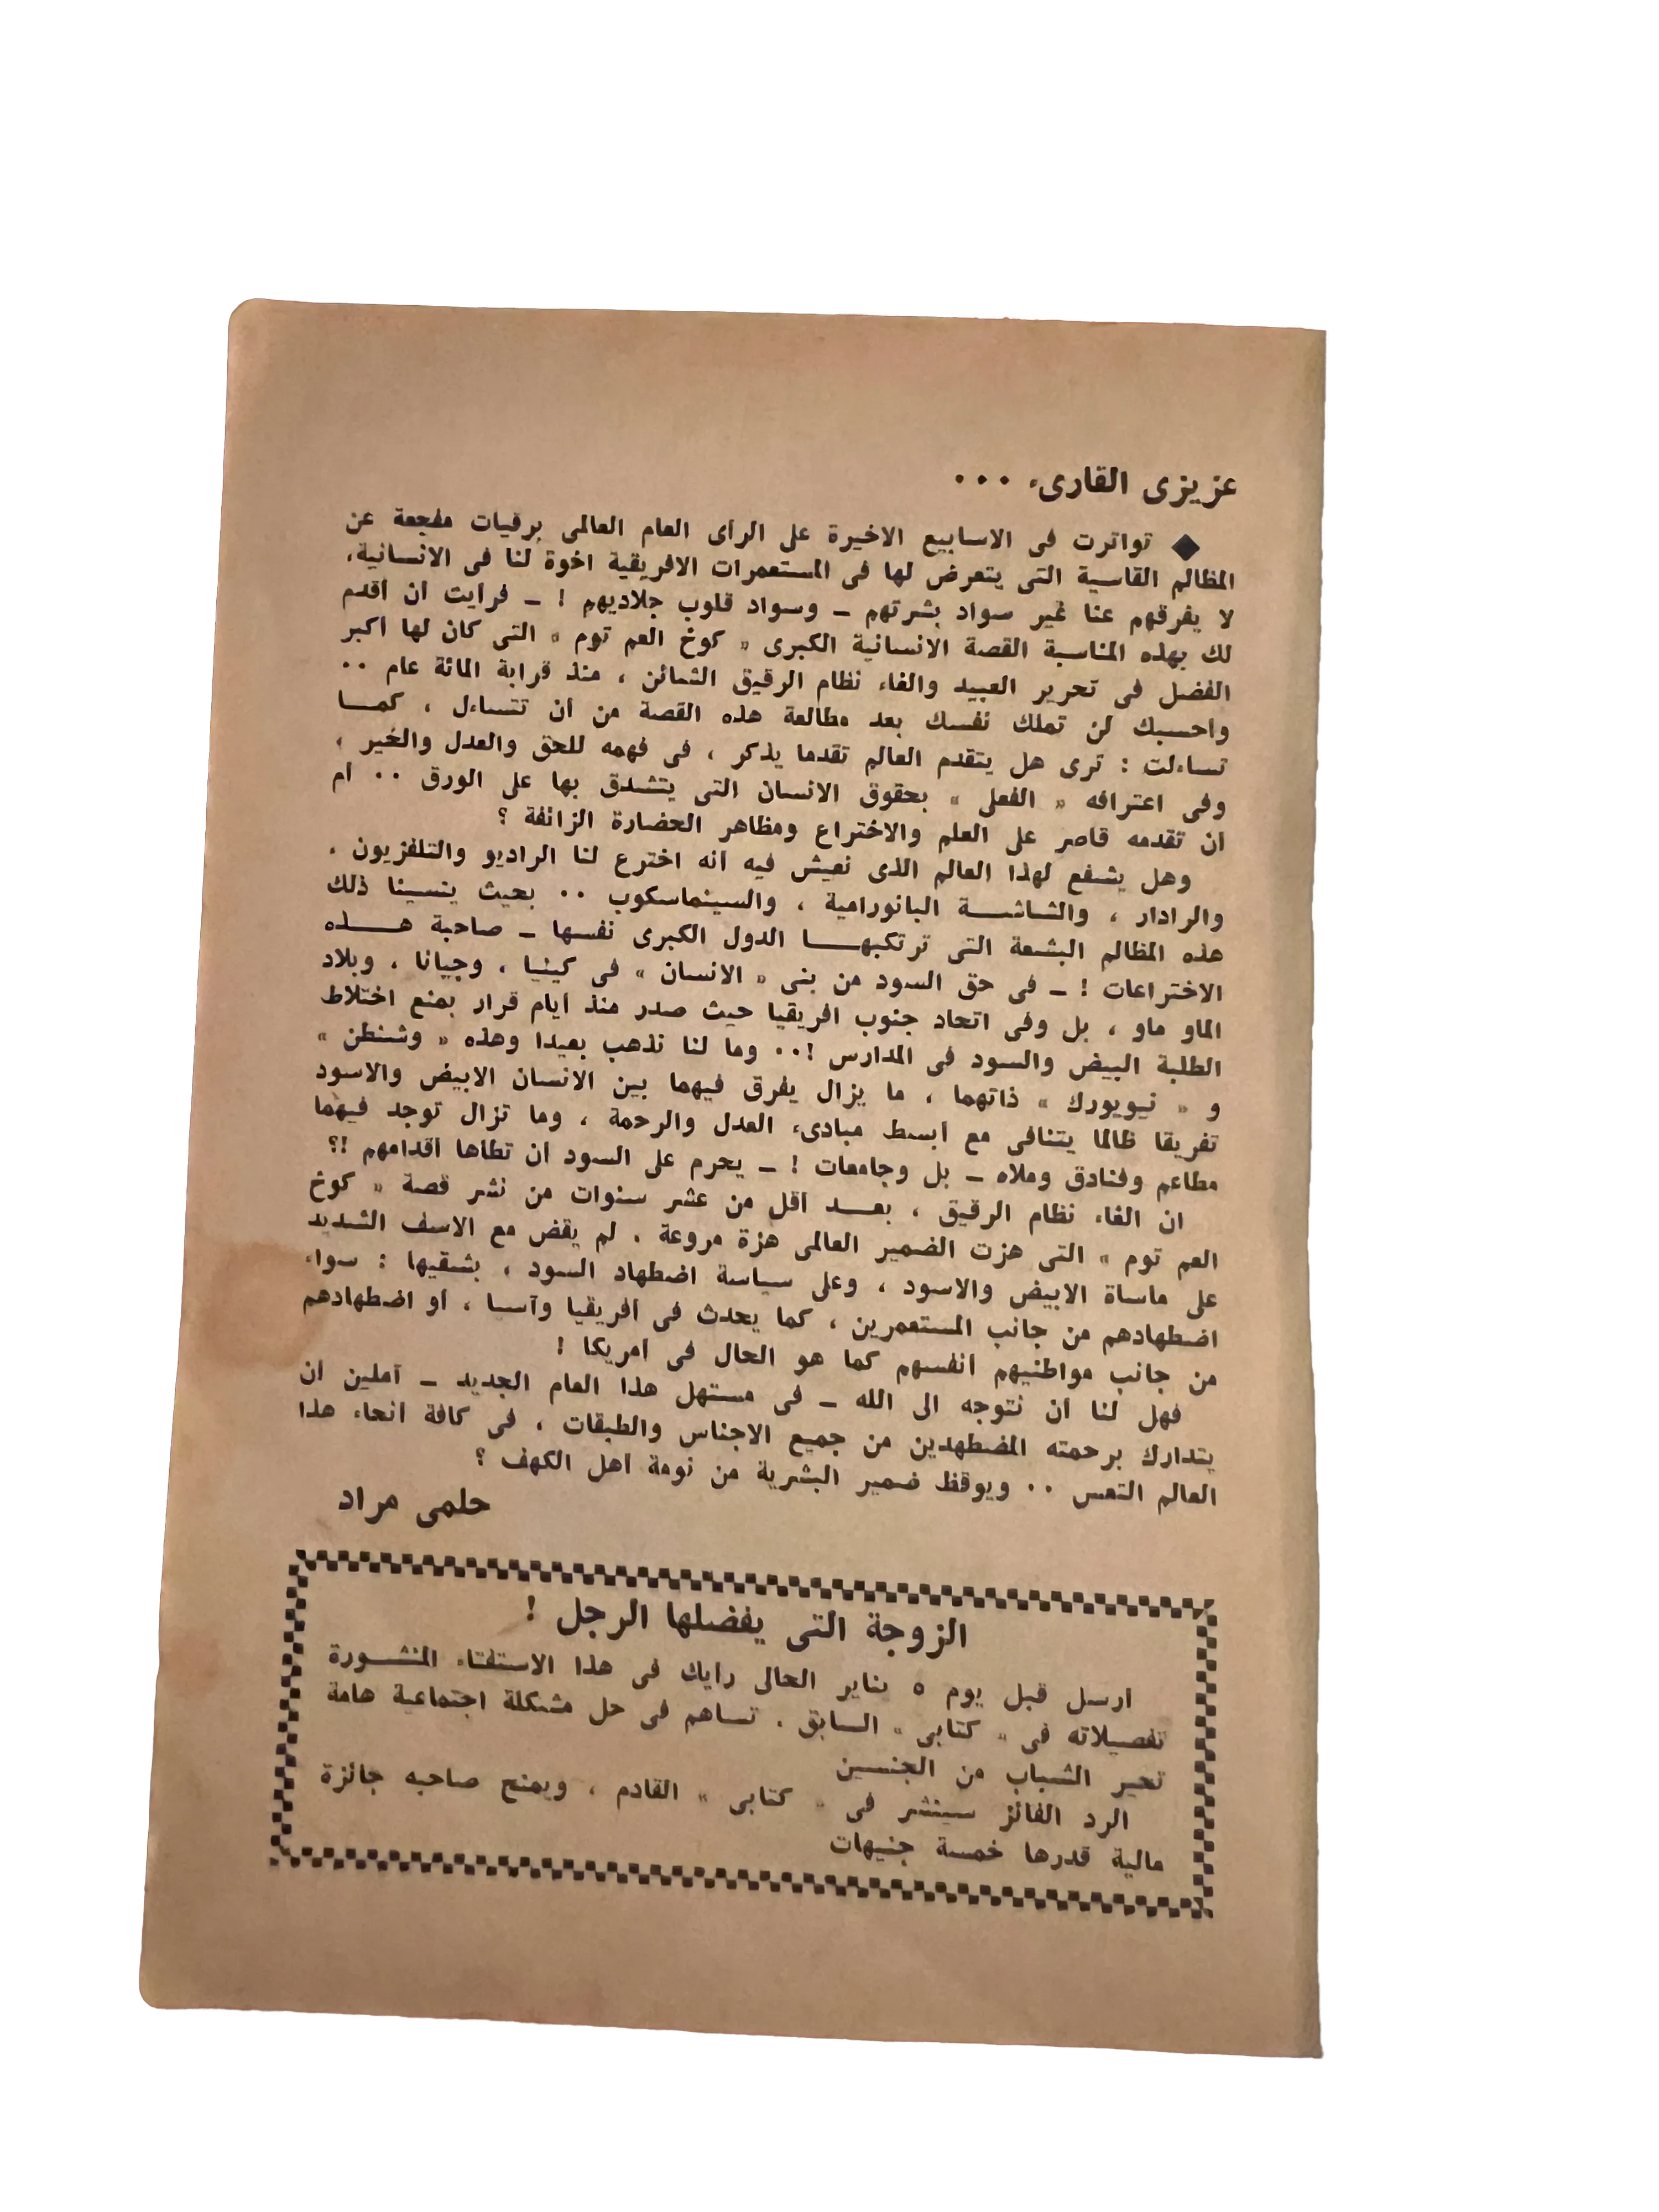 عزيزى القارىء ...
◆ تواترت فى الاسابيع الاخيرة على الرأى العام العالمى برقيات مفجعة عن
المظالم القاسية التى يتعرض لها فى المستعمرات الافريقية اخوة لنا فى الانسانية،
لا يفرقهم عنا غير سواد بشرتهم ـ وسواد قلوب جلاديهم ! ـ فرايت ان اقدم
لك بهذه المناسبة القصة الانسانية الكبرى « كوخ العم توم » التى كان لها اكبر
الفضل فى تحرير العبيد والغاء نظام الرقيق الشائن ، منذ قرابة المائة عام ..
واحسبك لن تملك نفسك بعد مطالعة هذه القصة من أن تتساءل ، كمــا
تساءلت : ترى هل يتقدم العالم تقدما يذكر ، فى فهمه للحق والعدل والخير ،
وفى اعترافه « الفعلى » بحقوق الانسان التى يتشدق بها على الورق .. أم
ان تقدمه قاصر على العلم والاختراع ومظاهر الحضارة الزائفة ؟
وهل يشفع لهذا العالم الذى نعيش فيه انه اخترع لنا الراديو والتلفزيون ،
والرادار ، والشاشــة البانورامية ، والسينماسكوب .. بحيث ينسينا ذلك
هذه المظالم البشعة التى ترتكبهــا الدول الكبرى نفسها ـ صاحبة هــذه
الاختراعات ! ـ فى حق السود من بنى « الانسان » فى كينيا ، وجيانا ، وبلاد
الماو ماو ، بل وفى اتحاد جنوب افريقيا حيث صدر منذ ايام قرار بمنع اختلاط
الطلبة البيض والسود فى المدارس !.. وما لنا نذهب بعيدا وهذه « وشنطن »
و « نيويورك » ذاتهما ، ما يزال يفرق فيهما بين الانسان الابيض والاسود
تفريقا ظالما يتنافى مع ابسط مبادىء العدل والرحمة ، وما تزال توجد فيهما
مطاعم وفنادق وملاه ـ بل وجامعات ! ـ يحرم على السود ان تطاها اقدامهم !؟
ان الغاء نظام الرقيق ، بعــد اقل من عشر سنوات من نشر قصة « كوخ
العم توم » التى هزت الضمير العالمى هزة مروعة ، لم يقض مع الاسف الشديد
على ماساة الابيض والاسود ، وعلى سياسة اضطهاد السود ، بشقيها : سواء
اضطهادهم من جانب المستعمرين ، كما يحدث فى أفريقيا وآسيا ، أو اضطهادهم
من جانب مواطنيهم انفسهم كما هو الحال فى امريكا !
فهل لنا أن نتوجه الى الله ـ فى مستهل هذا العام الجديد ـ آملين أن
يتدارك برحمته المضطهدين من جميع الاجناس والطبقات ، فى كافة انحاء هذا
العالم التعس .. ويوقظ ضمير البشرية من نومة اهل الكهف ؟
حلمى مراد
الزوجة التى يفضلها الرجل !
ارسل قبل يوم ٥ يناير الحالى رايك فى هذا الاستفتاء المنشــورة
تفصيلاته فى « كتابى » السابق . تساهم فى حل مشكلة اجتماعية هامة
تحير الشباب من الجنسين
الرد الفائز سينشر فى « كتابى » القادم ، ويمنح صاحبه جائزة
مالية قدرها خمسة جنيهات